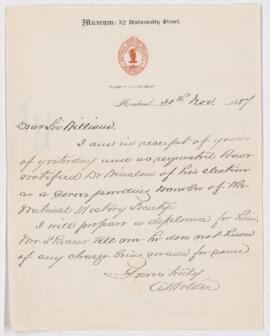 Museum: 32 University Street.
Montreal, 30th Nov. 1887
Dear Sir William,
I am in receipt of yours
of yesterday and as requested have
notified Dr Winslow of his election
as a corresponding member of the
Natural History Society.
I will prepare a diploma for him.
Mr tells me he does not know
of any charge being made for same
Yours truly